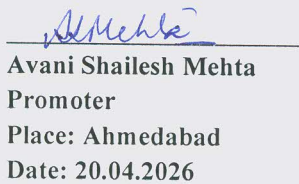 A.S.Mehta
Avani Shailesh Mehta
Promoter
Place: Ahmedabad
Date: 20.04.2026